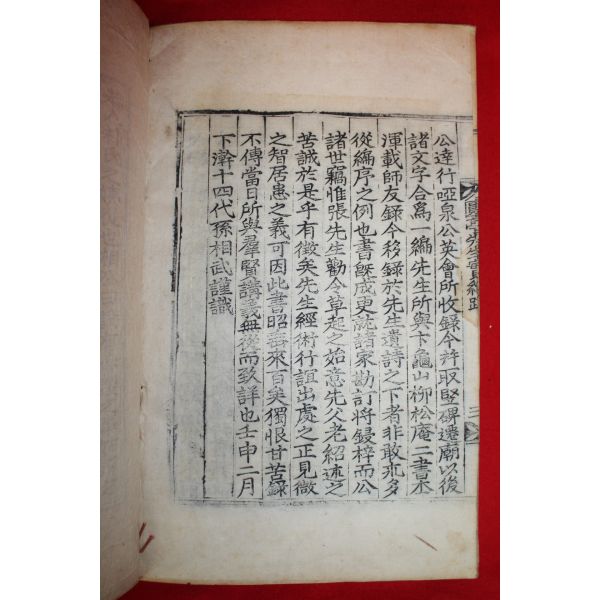 公達行啞泉公英會所收錄今幷取竪碑遷廟以後
諸文字合爲一編先生所與卞龜山柳松庵二書不
渾載師友錄今移錄於先生遺詩之下者非敢求多
從編序之例也書旣成更就諸家勘訂將鋟梓而公
諸世竊惟張先生勸令草起之始意先父老紹述之
苦誠於是乎有徵矣先生經術行誼出處之正見微
之智居患之義可因此書昭 來百矣獨恨甘苦錄
不傳當日所與羣賢講義無從而致詳也壬申二月
下澣十四代孫相武謹識
先生實紀跋
三